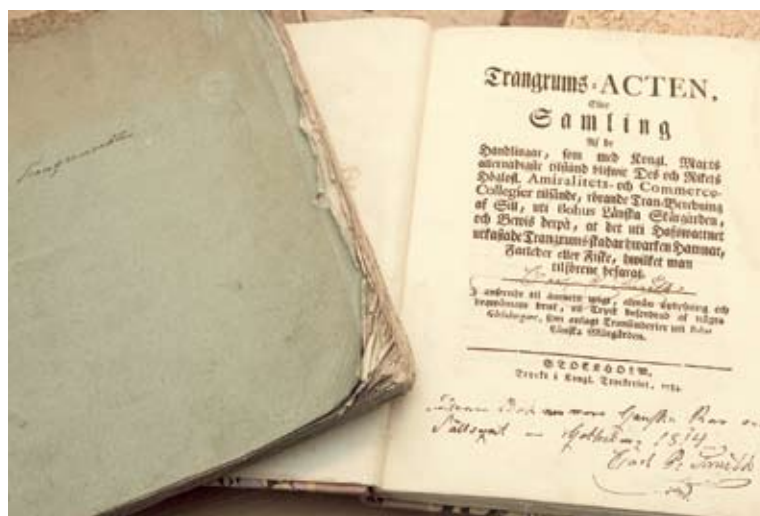 Trangrums-ACTEN,
Eller
Samling
Af de
Handlingar, som med Kongl. Maj:ts
allernådigste tilstånd blifwit Des och Rikets
Högloft. Amiralitets- och Commerce-
Collegier tilsände, rörande Tran-Beredning
af Sill, uti Bohus Länska Skärgården,
och Bewis derpå, at det uti Hafswattnet
utkastade Trangrums skadar hwarken Hamnar,
Farleder eller Fiske, hwilket man
tilförene befarat.
i anseende til ämnets wigt, almän uplysning och
Göteborgare, som anlagt Transiuderier uti Bohus
Länska Skärgården.
STOCKHOLM,
Tryckt i Kongl. Tryckeriet, 1784.
1814
Carl